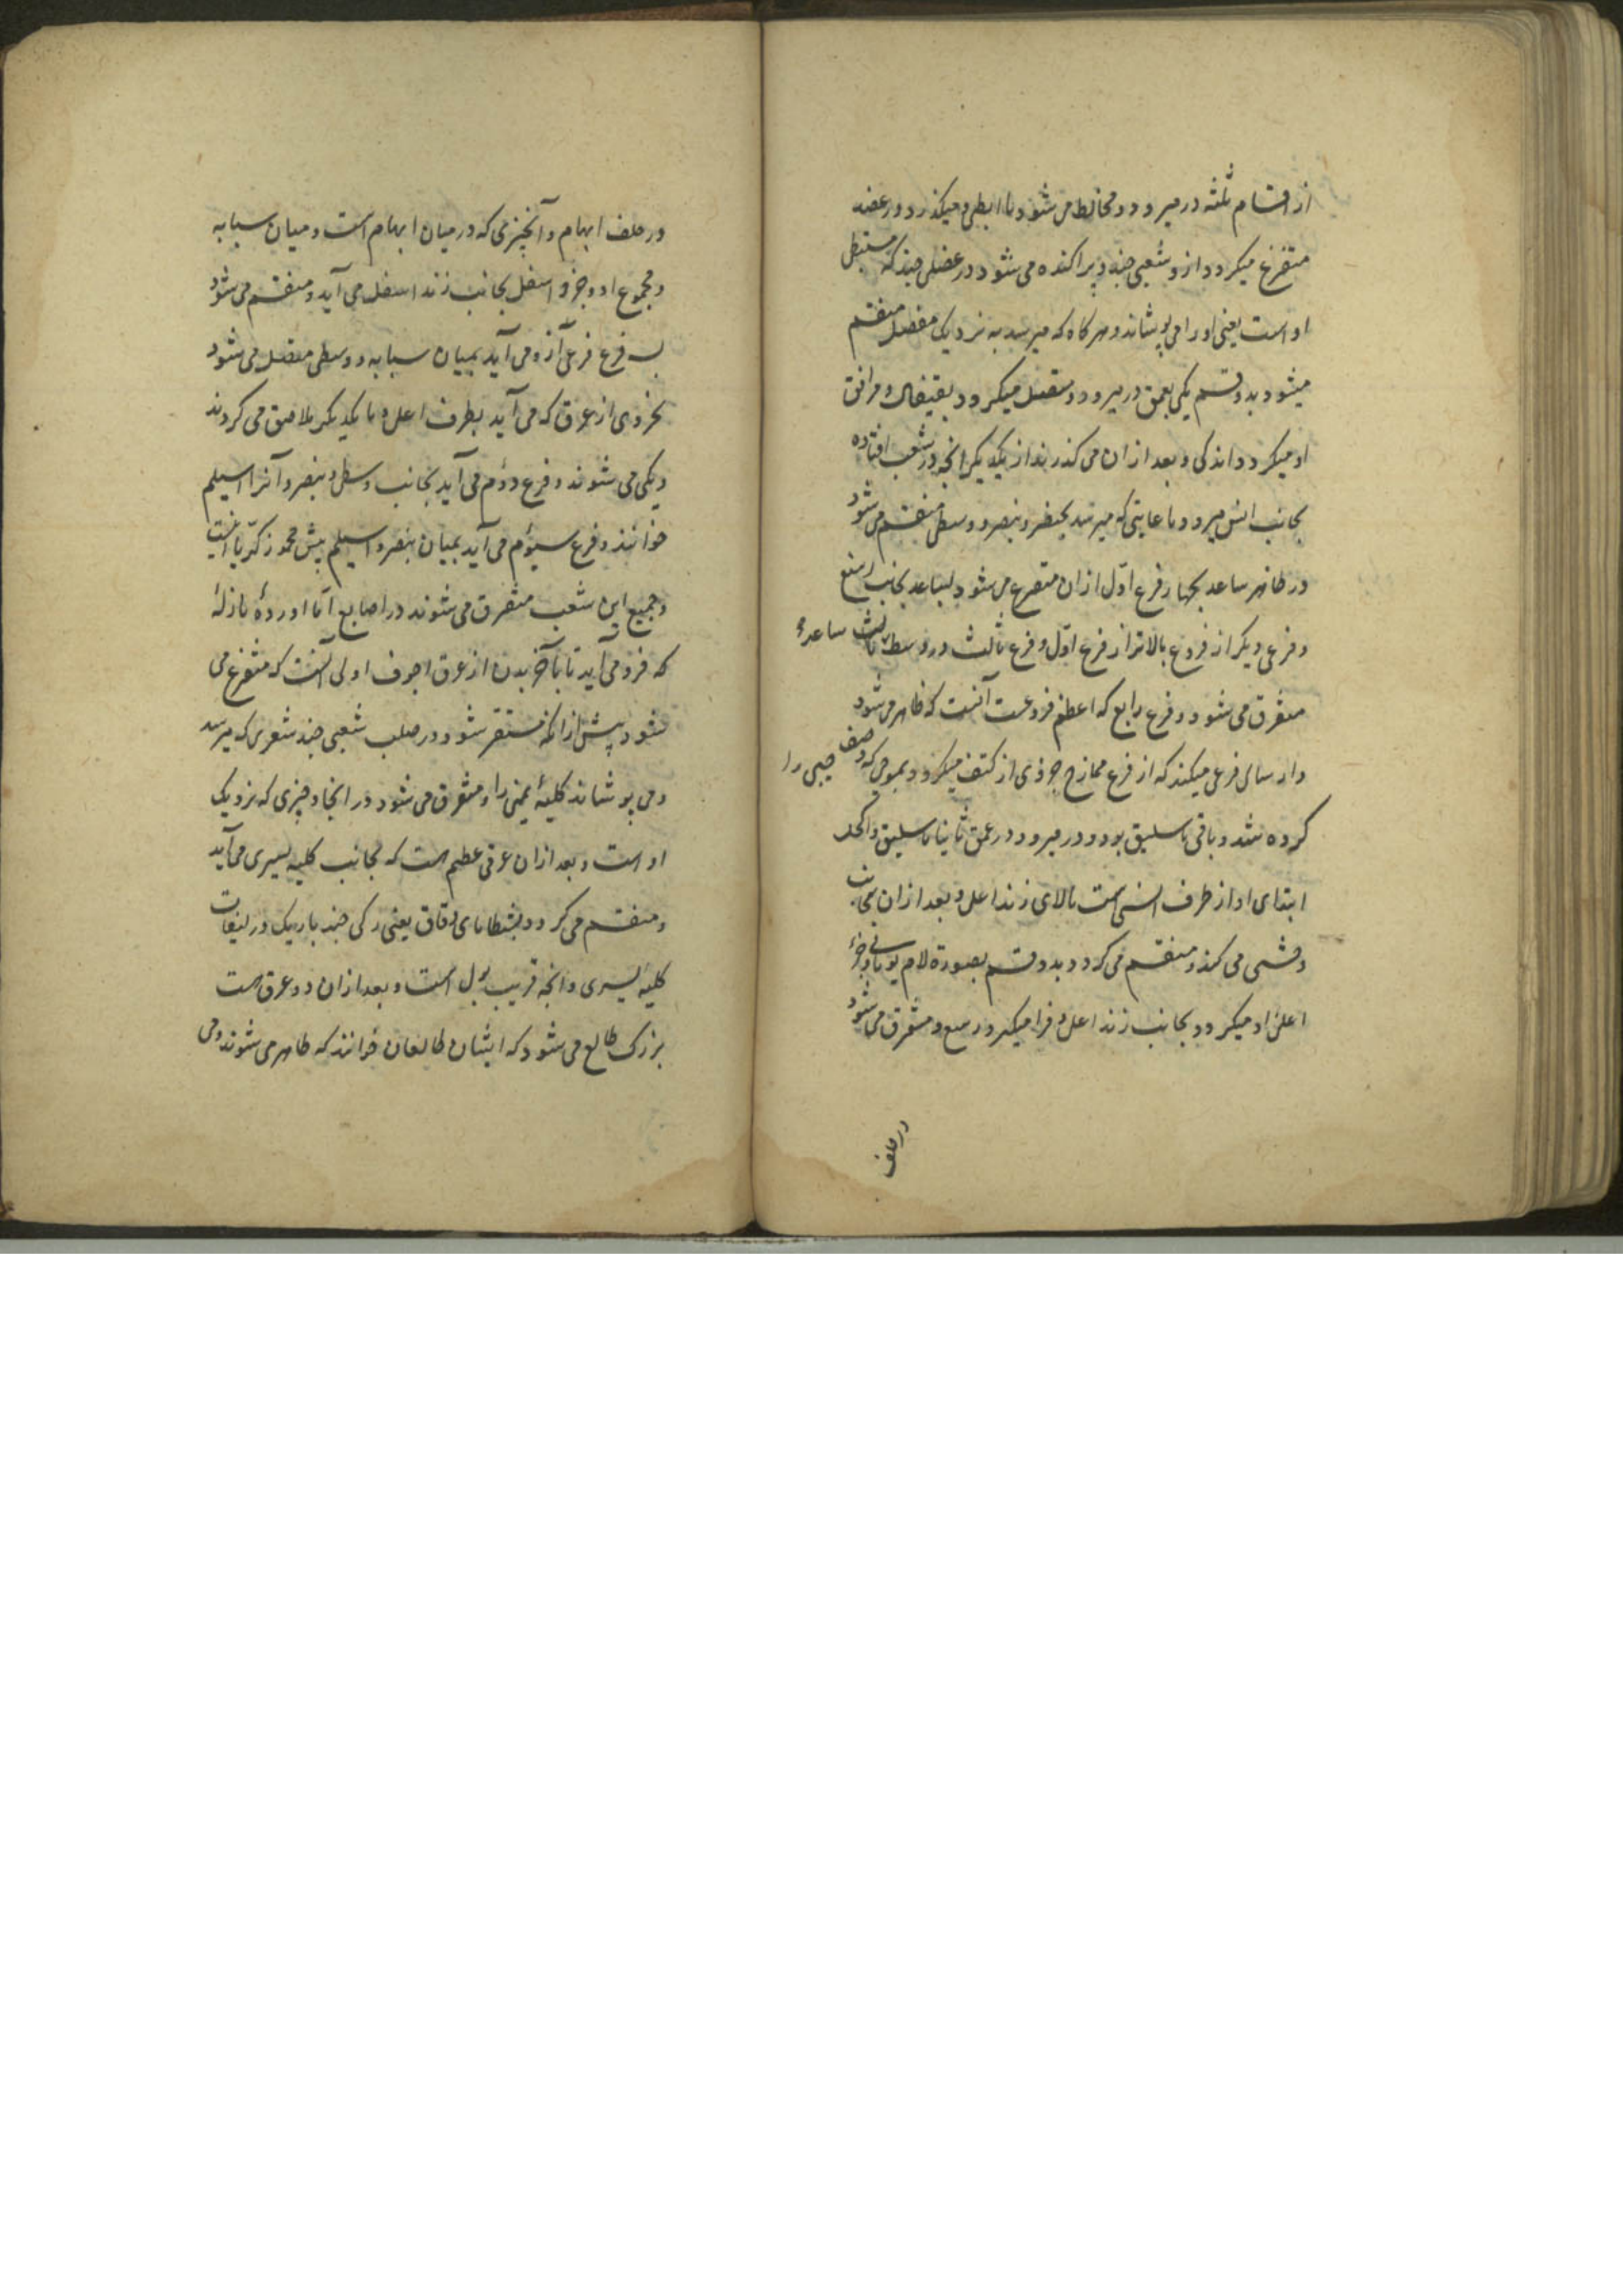 از اقسام ثلثه در میرود و مخالط می شود با ابطی و میکذرد در عضد
متفرع میکردد ازو شعبی چند و پراکنده می شود در عضلی چند که مستبطن
او است یعنی او را می پوشاند و هرکاه که میرسد به نزدیک مفصل منقسم
میشود بدو قسم یکی بعمق در میرود و متصل میکردد بقیفال و مرافق
او میکردد اندکی و بعد ازان می کذرند از یکدیکر انچه در شعب افتاده
بجانب انسی میرود تا غایتی که میرسد بخنصر و بنصر و وسطی منقسم می شود
در ظاهر ساعد بچهار فرع اول ازان متفرع می شود بساعد بجانب رسغ
و فرعی دیکر از فروع بالاتر از فرع اول و فرع ثالث در وسط ساعد
متفرق می شود و فرع رابع که اعظم فروعست آنست که ظاهر می شود
و ارسالی فرعی میکند که از فرع ممازج جزوی از کتف میکردد بموجبی که وصف
کرده شد و باقی باسلیق بود و در میرود در عمق ثانیا باسلیق و اکحل
ابتدای او از طرف انسی است بالای زند اعلی و بعد ازان بجانب
وحشی می کند و منقسم می کردد بدو قسم بصورة لام یونانی و جزء
اعلی او میکردد بجانب زند اعلی و فرا میکیرد رسغ و متفرق می شود
در خلف
در خلف ابهام و آنچیزی که در میان ابهام است و میان سبابه
و مجموع او و جزو اسفل بجانب زند اسفل می آید و منقسم می شود
بسه فرع فرعی ازو می آید بمیان سبابه و وسطی متصل می شود
بجزوی از عرق که می آید بطرف اعلی و با یکدیکر ملاصق می کردند
و یکی می شوند و فرع دوم می آید بجانب وسطی و بنصر و آنرا اسیلم
خوانند و فرع سیوم می آید بمیان بنصر و اسیلم پیش محمد زکریا انست
و جمیع این شعب متفرق می شوند در اصابع اما اورده نازله
که فرو می آید تا بآخر بدن از عرق اجوف اولی آنست که متفرع می
شود پیش از انکه مستقر شود در صلب شعبی چند شعری که میرسد
و می پوشاند کلیهٔ یمنی را و متفرق می شود در انجا و چیزی که نزدیک
او است و بعد ازان عرقی عظیم است که بجانب کلیه یسری می آید
و منقسم می کردد بشظایای دقاق یعنی رکی چند باریک در لفایف
کلیه یسری و انچه قریب بول است و بعد ازان دو عرق است
بزرک طالع می شود که ایشان طالعان خوانند که ظاهر می شوند و می